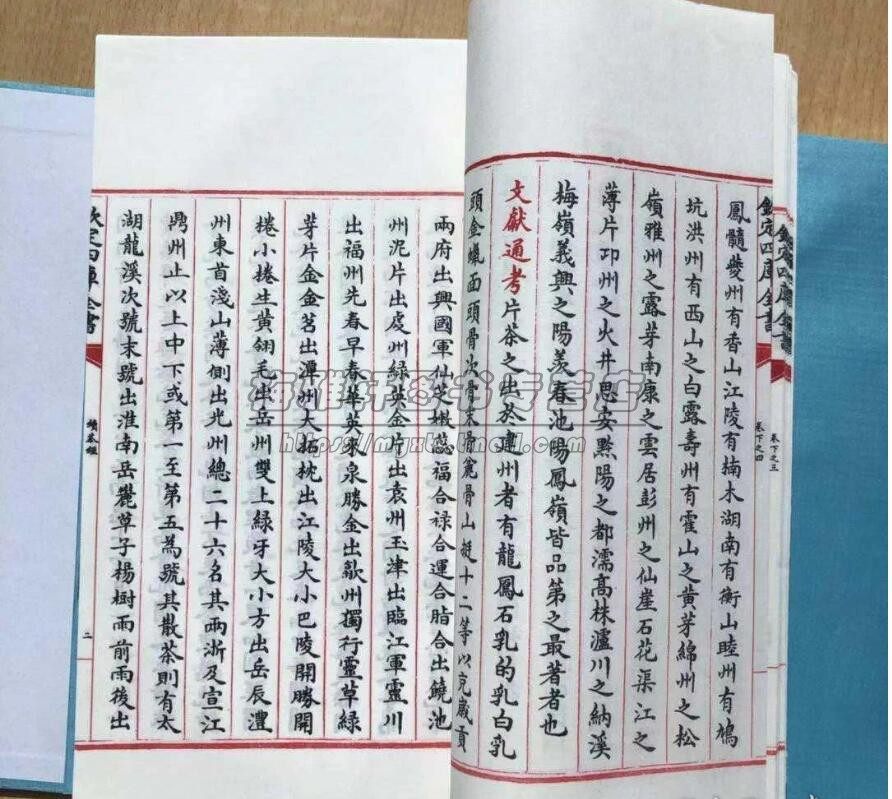 欽定四庫全書
卷下之三
欽定四庫全書
卷下之四
鳳髓夔州有香山江陵有楠木湖南有衡山睦州有鳩
坑洪州有西山之白露壽州有霍山之黃芽綿州之松
嶺雅州之露芽南康之雲居彭州之仙崖石花渠江之
薄片邛州之火井思安黔陽之都濡高株瀘川之納溪
梅嶺義興之陽羨春池陽鳳嶺皆品第之最著者也
文獻通考片茶之出於建州者有龍鳳石乳的乳白乳
頭金蠟面頭骨次骨末骨麄骨山挺十二等以充歲貢
兩府出興國軍仙芝嫩蕊福合祿合運合脂合出饒池
州泥片出虔州綠英金片出袁州玉津出臨江軍靈川
出福州先春早春華英來泉勝金出歙州獨行靈草綠
芽片金金茗出潭州大拓枕出江陵大小巴陵開勝開
捲小捲生黃翎毛出岳州雙上綠牙大小方出岳辰澧
州東首淺山薄側出光州總二十六名其兩浙及宣江
鼎州止以上中下或第一至第五為號其散茶則有太
湖龍溪次號末號出淮南岳麓草子楊樹雨前雨後出
欽定四庫全書
續茶經
二
梅雅軒圖書專營店
https://myxts.tmall.com